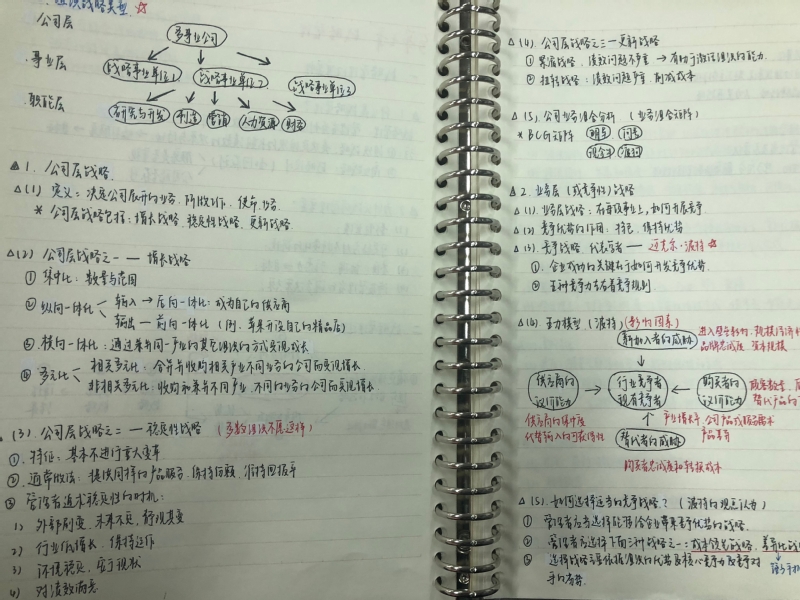 组织战略类型 ☆
公司层
多事业公司
事业层
战略事业单位1
战略事业单位2
战略事业单位3
职能层
研究与开发
制造
营销
人力资源
财务
△1. 公司层战略.
△(1) 定义:决定公司展开的业务
* 公司层战略包括:增长战略、稳定性战略、更新战略.
△(2) 公司层战略之一 — 增长战略
① 集中化:数量与范围
② 纵向一体化
输入 → 后向一体化:成为自己的供应商
输出 — 前向一体化(例:苹果开设自己的精品店)
③ 横向一体化:通过兼并同一产业的其它组织的方式实现成长
④ 多元化
相关多元化:合并并收购相关产业不同业务的公司而实现增长
非相关多元化:收购和兼并不同产业、不同的业务的公司而实现增长.
(3) 公司层战略之二 — 稳定性战略 (多数组织不愿这样)
①. 特征:基本不进行重大变革
②. 通常做法:提供同样的产品服务、保持份额、维持回报率
③ 管理者追求稳定性的时机:
1) 外部剧变、未来不定、静观其变
2) 行业低增长、保持运作
3) 环境稳定、安于现状
4) 对绩效满意
△(4). 公司层战略之三 — 更新战略
① 紧缩战略:绩效问题不严重 → 有助于激活组织的能力.
② 扭转战略:绩效问题严重、削减成本
△(5). 公司业务组合分析 (业务组合矩阵)
* BCG矩阵
明星
问号
现金牛
瘦狗
△2. 业务层(或竞争性)战略
△(1). 业务层战略:在每项事业上,如何开展竞争
△(2) 竞争优势的作用:持己、保持优势
△(3). 竞争战略,代表学者 — 迈克尔·波特 ☆
①. 企业成功的关键在于如何开发竞争优势
② 五种竞争力支右着竞争规则
△(4) 五力模型(波特)(影响因素)
新加入者的威胁
进入壁垒影响:规模经济
品牌忠诚度 资本规模
供应商的议价能力
行业竞争者
现有竞争者
购买者的议价能力
顾客数量、
替代产品的
供应商的集中度
代替输入的可获得性
产业增长率、公司产品或服务需求
产品差异
替代者的威胁
购买者忠诚度和转换成本
△(5). 如何选择适当的竞争战略?(波特的观点认为)
① 管理者应当选择能够给企业带来竞争优势的战略.
② 管理者应选择下面三种战略之一:成本领先战略、差异化战
③ 选择战略主要依据组织的优势及核心竞争力及竞争对
手的劣势.